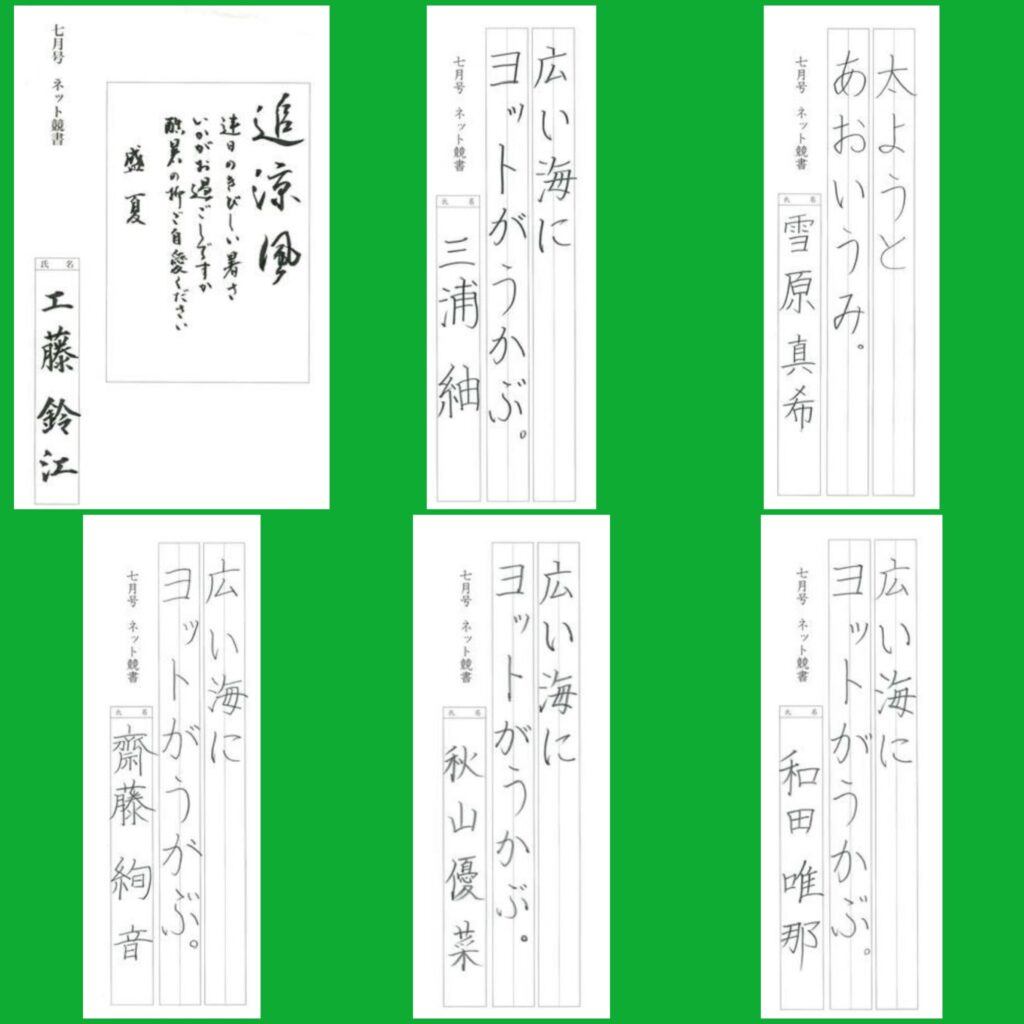 追涼風
連日のきびしい暑さ
いかがお過ごしですか
酷暑の折ご自愛ください
盛夏
七月号 ネット競書
氏名
工藤鈴江
広い海に
ヨットがうかぶ。
七月号 ネット競書
氏名
三浦紬
太ようと
あおいうみ。
七月号 ネット競書
氏名
雪原真希
広い海に
ヨットがうがぶ。
七月号 ネット競書
氏名
齋藤絢音
広い海に
ヨットがうかぶ。
七月号 ネット競書
氏名
秋山優菜
広い海に
ヨットがうかぶ。
七月号 ネット競書
氏名
和田唯那